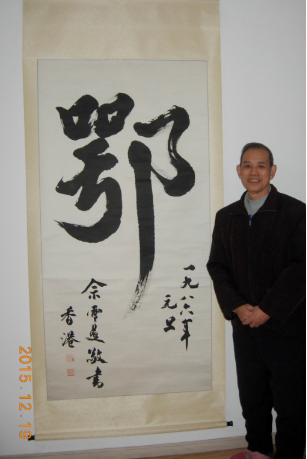 鄂
一九八六年
元旦
佘雪曼敬書
香港
2015.12.19